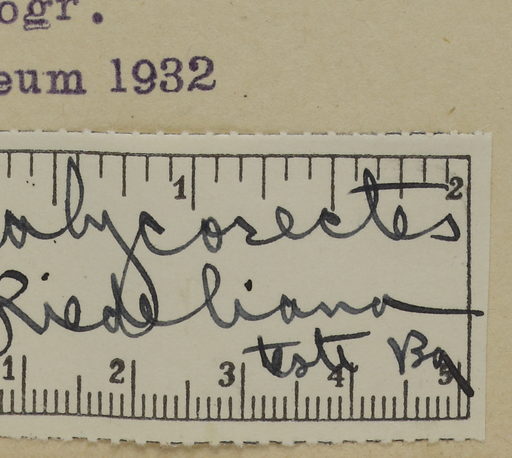 ogr.
eum 1932
1 2
alycorectes
Riedeliana
teste
1 2 3 4 5